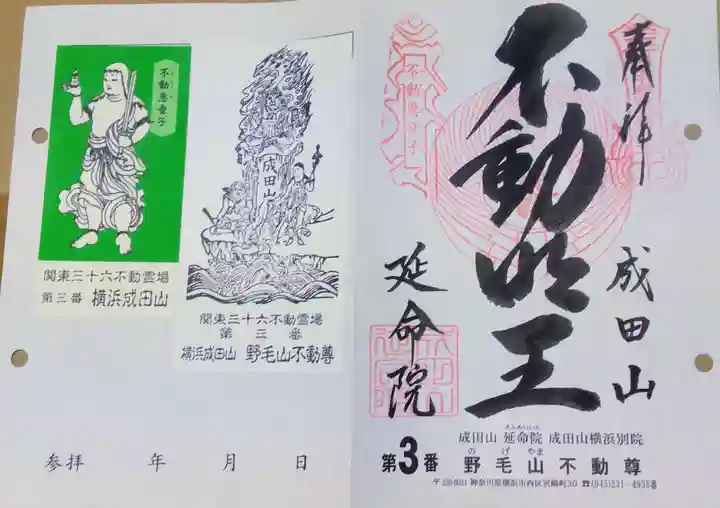 不動恵童子
成田山
関東三十六不動霊場
第三番 横浜成田山
関東三十六不動霊場
第三番
横浜成田山 野毛山不動尊
参拝 年 月 日
奉拝
成田山
不動明王
延命院
えんめいいん
成田山 延命院 成田山横浜別院
のげやま
第3番 野毛山不動尊
神奈川県横浜市西区宮崎町30 ☎(045)231-4935番